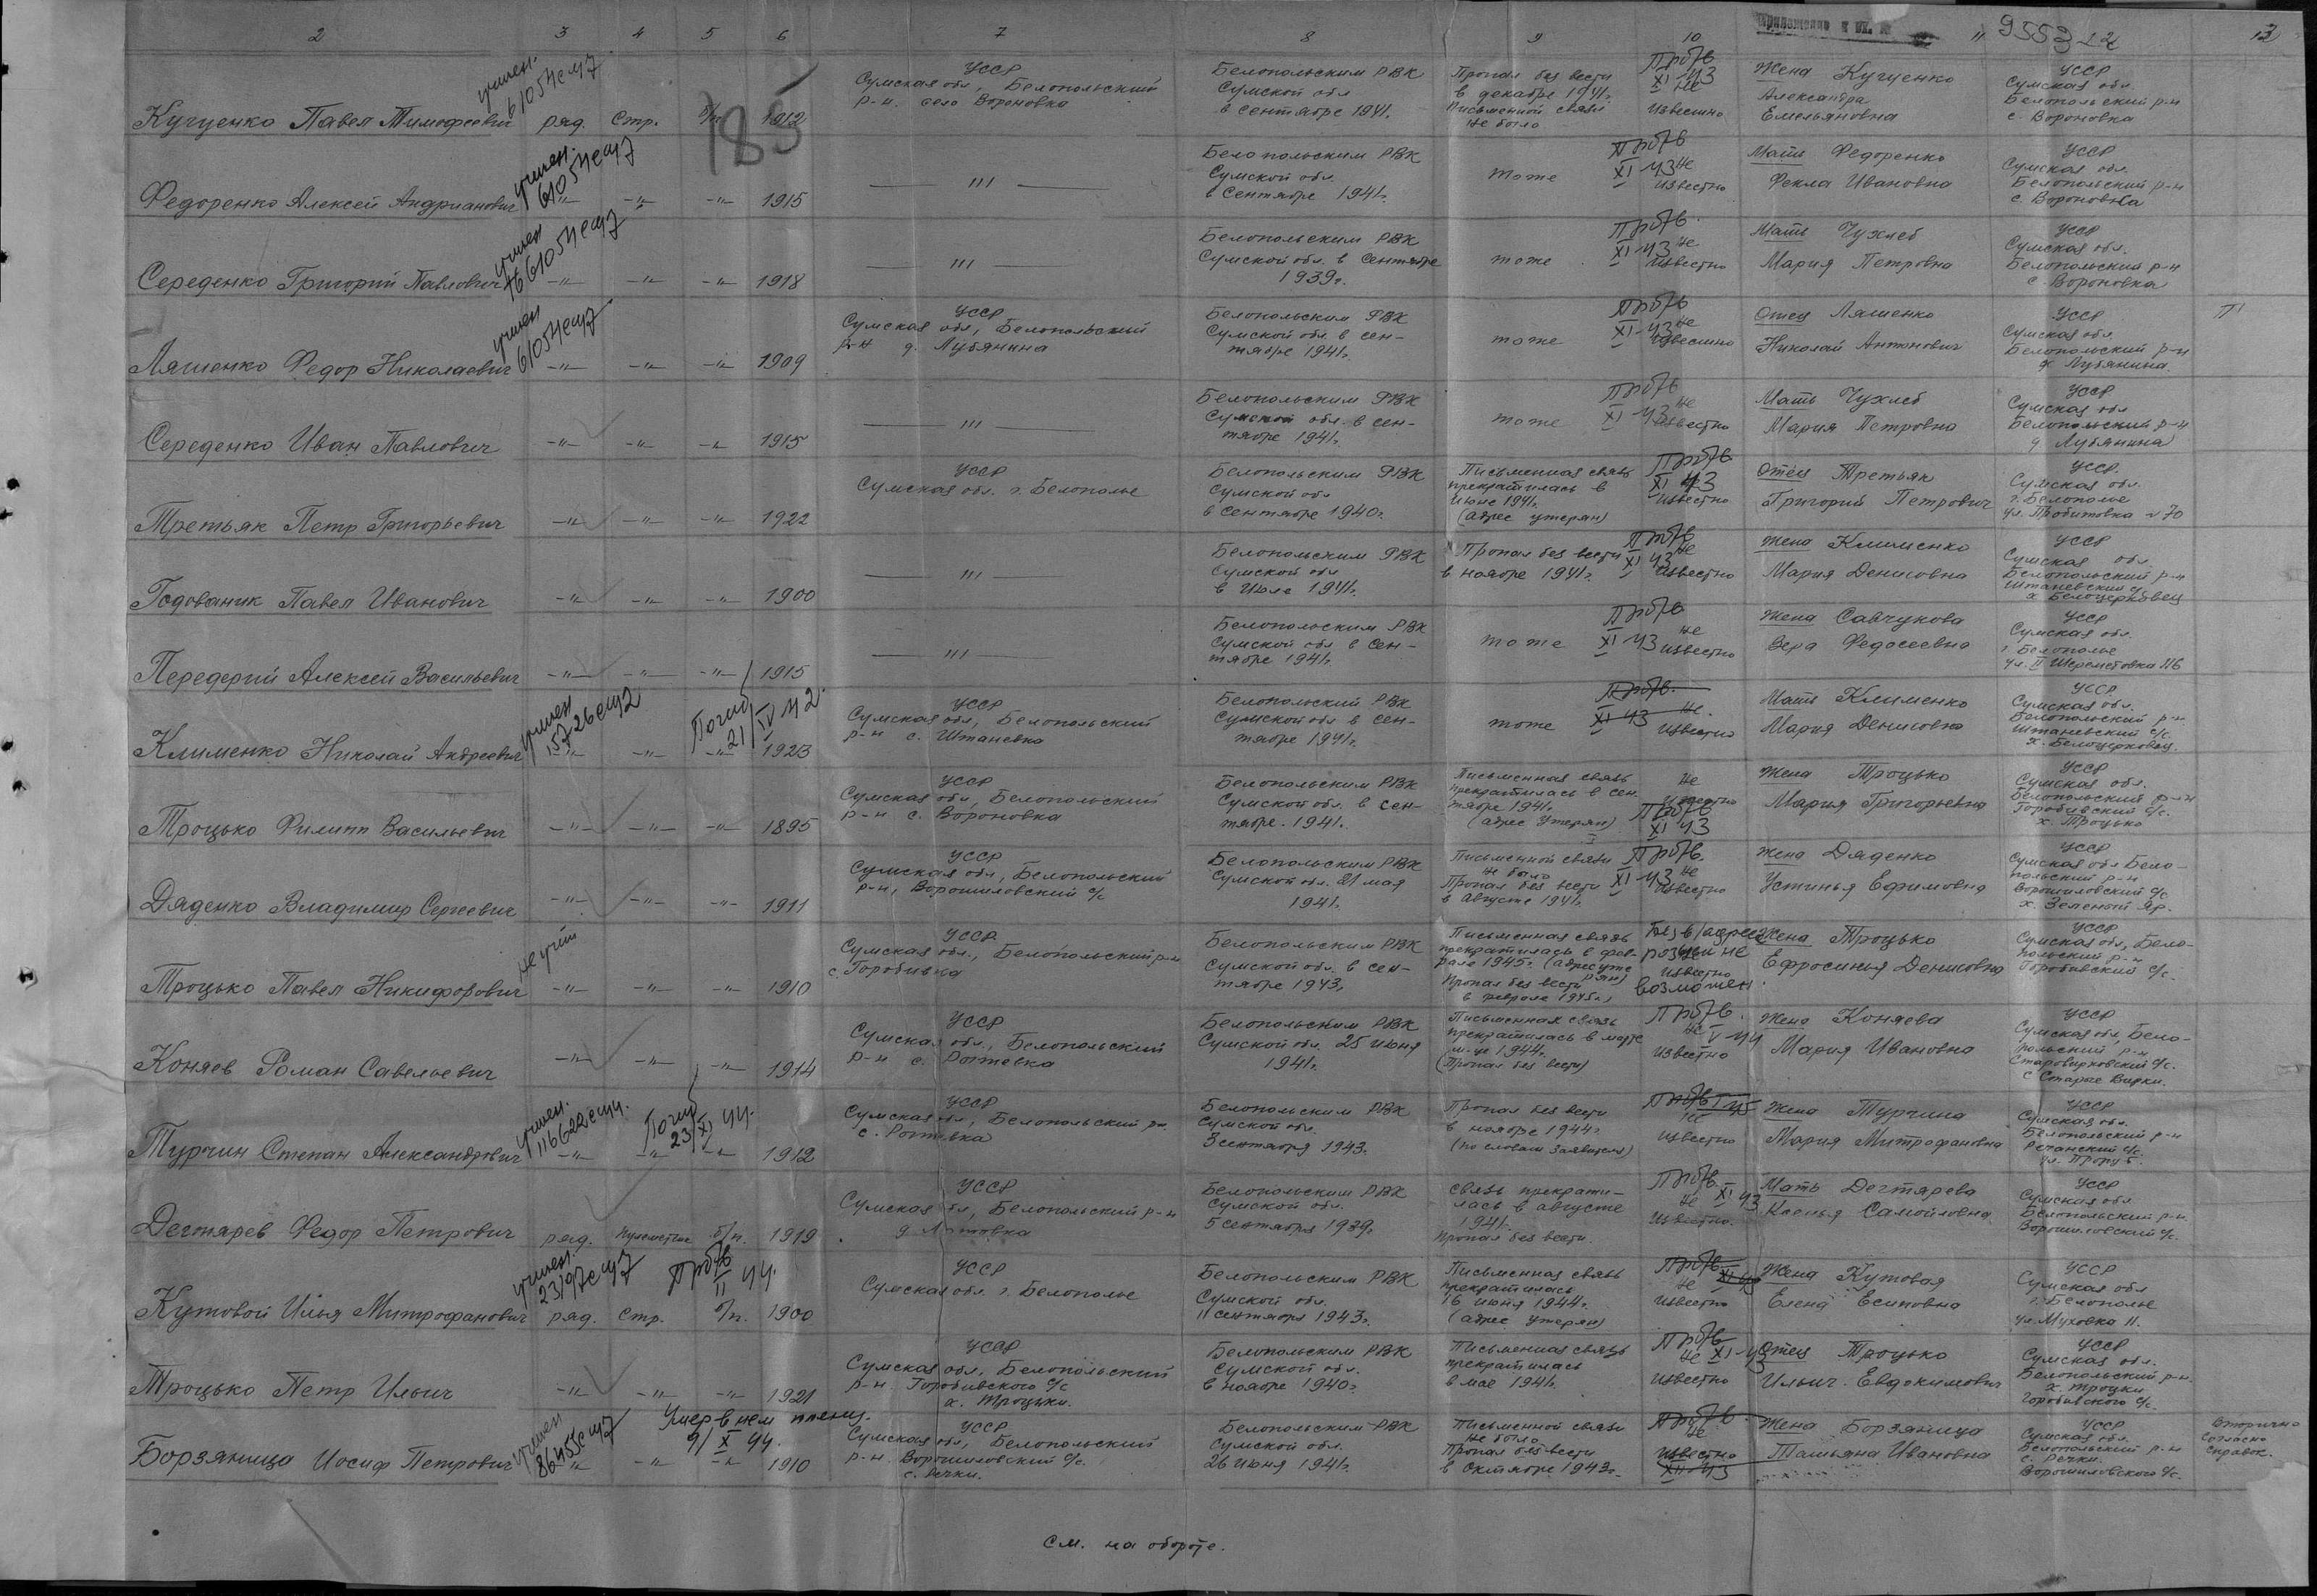 2 3 4 5 6 7 8 9 10 11 12
9553 22
185
Кугуенко Павел Тимофеевич ряд. Стр. б/п 1912
учтен. 61054с 47
УССР
Сумская обл, Белопольский
р-н. село Вороновка
Белопольским РВК
Сумской обл
в сентябре 1941г.
Пропал без вести
в декабре 1941г.
Письменной связи
не было
Пр б/в
XI 43
не
известно
Жена Кугуенко
Александра
Емельяновна
УССР
Сумская обл.
Белопольский р-н
с. Вороновка
Федоренко Алексей Андрианович -"- -"- -"- 1915
учтен. 61054с 47
—— "' ——
Белопольским РВК
Сумской обл.
в Сентябре 1941г.
тоже
Пр б/в
XI 43 не
известно
Мать Федоренко
Фекла Ивановна
УССР
Сумская обл.
Белопольский р-н
с. Вороновка
Середенко Григорий Павлович -"- -"- -"- 1918
учтен 61054с 47
—— "' ——
Белопольским РВК
Сумской обл. в Сентябре
1939г.
тоже
Пр б/в.
XI 43 не
известно
Мать Чухлеб
Мария Петровна
УССР
Сумская обл.
Белопольский р-н
с. Вороновка
Ляшенко Федор Николаевич -"- -"- -"- 1909
учтен 61054с 47
УССР
Сумская обл, Белопольский
р-н д. Лубянина
Белопольским РВК
Сумской обл. в сен-
тябре 1941г.
тоже
Пр б/в
XI 43 не
известно
Отец Ляшенко
Николай Антонович
УССР
Сумская обл
Белопольский р-н
д. Лубянина.
Середенко Иван Павлович -"- -"- -"- 1915
—— "' ——
Белопольским РВК
Сумской обл. в сен-
тябре 1941г.
тоже
Пр б/в
XI 43 не
известно
Мать Чухлеб
Мария Петровна
УССР
Сумская обл
Белопольский р-н
д Лубянина
Третьяк Петр Григорьевич -"- -"- -"- 1922
УССР
Сумская обл. г. Белополье
Белопольским РВК
Сумской обл
в сентябре 1940г.
Письменная связь
прекратилась в
июле 1941г.
(адрес утерян)
Пр б/в
XI 43
известно
Отец Третьяк
Григорий Петрович
УССР.
Сумская обл.
г. Белополье
ул. Пробитовка №70
Годованик Павел Иванович -"- -"- -"- 1900
—— "' ——
Белопольским РВК
Сумской обл
в июле 1941г.
Пропал без вести
в ноябре 1941г.
Пр б/в
XI 43 не
известно
Жена Клименко
Мария Денисовна
УССР
Сумская обл.
Белопольский р-н
Штаневский с/с
х Белоцерковец
Передерий Алексей Васильевич -"- -"- -"- 1915
—— "' ——
Белопольским РВК
Сумской обл в сен-
тябре 1941г.
тоже
Пр б/в
XI 43 не
известно
Жена Савчукова
Вера Федосеевна
УССР
Сумская обл.
г Белополье
ул. II Шереметовка 116
Клименко Николай Андреевич -"- -"- -"- 1923
учтен 15726с 42
Погиб
21/IV 42.
УССР
Сумская обл, Белопольский
р-н с. Штаневка
Белопольский РВК
Сумской обл в сен-
тябре 1941г.
тоже
Пр б/в.
XI 43 не.
известно
Мать Клименко
Мария Денисовна
УССР
Сумская обл.
Белопольский р-н
Штаневский с/с.
х. Белоцерковец.
Троцько Филипп Васильевич -"- -"- -"- 1895
УССР
Сумская обл, Белопольский
р-н с. Вороновка
Белопольским РВК
Сумской обл. в сен-
тябре. 1941г.
Письменная связь
прекратилась в сен.
тябре 1941г.
(адрес утерян)
не
известно
Пр б/в
XI 43
Жена Троцько
Мария Григорьевна
УССР
Сумская обл.
Белопольский р-н
Горобивский с/с.
х. Троцько
Дяденко Владимир Сергеевич -"- -"- -"- 1911
УССР
Сумская обл, Белопольский
р-н, Ворошиловский с/с
Белопольским РВК
Сумской обл. 21 мая
1941г.
Письменной связи
не было
Пропал без вести
в Августе 1941г.
Пр б/в.
XI 43 не
известно
Жена Дяденко
Устинья Ефимовна
УССР
Сумская обл Бело-
польский р-н
Ворошиловский с/с
х. Зеленый Яр.
Троцько Павел Никифорович -"- -"- -"- 1910
не учтён
УССР
Сумская обл., Белопольский р-н
с. Горобивка
Белопольским РВК
Сумской обл. в сен-
тябре 1943г.
Письменная связь
прекратилась в фев-
рале 1945г. (адрес уте
рян)
Пропал без вести
в феврале 1945г.
Без в/адреса
розыск не
известно
возможен.
Жена Троцько
Ефросинья Денисовна
УССР
Сумская обл, Бело-
польский р-н
Горобивский с/с.
Коняев Роман Савельевич -"- -"- -"- 1914
УССР
Сумская обл., Белопольский
р-н с. Роттевка
Белопольским РВК
Сумской обл. 25 июня
1941г.
Письменная связь
прекратилась в марте
м-це 1944г.
(Пропал без вести)
Пр б/в.
не V 44
известно
Жена Коняева
Мария Ивановна
УССР
Сумская обл, Бело-
польский р-н
Старовирковский с/с.
с Старые Вирки.
Турчин Степан Александрович -"- -"- -"- 1912
учтен. 116622с 44.
Погиб
23/XI 44.
УССР
Сумская обл, Белопольский рн.
с. Роттевка
Белопольским РВК
Сумской обл.
3 сентября 1943г.
Пропал без вести
в ноябре 1944г
(по словам заявителя)
Пр б/в I 45
не
известно
Жена Турчина
Мария Митрофановна
УССР
Сумская обл.
Белопольский р-н
Речанский с/с.
Дегтярев Федор Петрович ряд. пулеметчик б/п. 1919
УССР
Сумская обл, Белопольский р-н
Белопольским РВК
Сумской обл.
5 сентября 1939г.
Связь прекрати-
лась в августе
1941г.
Пропал без вести.
Пр б/в.
не XI 43
известно.
Мать Дегтярева
Ксенья Самойловна
УССР
Сумская обл
Белопольский р-н.
Ворошиловский с/с.
Кутовой Илья Митрофанович ряд. Стр. б/п. 1900
учтен. 23197с 47
Пр б/в
II 44.
УССР
Сумская обл. г. Белополье
Белопольским РВК
Сумской обл.
11 сентября 1943г.
Письменная связь
прекратилась
16 июня 1944г.
(адрес утерян)
Пр б/в
не XI 43
известно
Жена Кутовая
Елена Есиповна
УССР
Сумская обл
г. Белополье
ул. Муховка 11.
Троцько Петр Ильич -"- -"- -"- 1921
УССР
Сумская обл, Белопольский
р-н. Горобивского с/с
х. Троцьки.
Белопольским РВК
Сумской обл.
в ноябре 1940г.
Письменная связь
прекратилась
в мае 1941г.
Пр б/в
не XI 43
известно
Отец Троцько
Ильич Евдокимович
УССР
Сумская обл.
Белопольский р-н.
х. Троцки
Горобивского с/с.
Борзяница Иосиф Петрович -"- -"- -"- 1910
учтен 86455с 47
Умер в нем плену.
9/X 44.
УССР
Сумская обл, Белопольский
р-н. Ворошиловский с/с.
с. Речки.
Белопольским РВК
Сумской обл.
26 июня 1941г.
Письменной связи
не было
Пропал без вести
в октябре 1943г.
Пр б/в.
не
известно
XII 43
Жена Борзяница
Татьяна Ивановна
УССР
Сумская обл.
Белопольский р-н
с. Речки.
Ворошиловского с/с.
Вторично
согласно
справок.
См. на обороте.